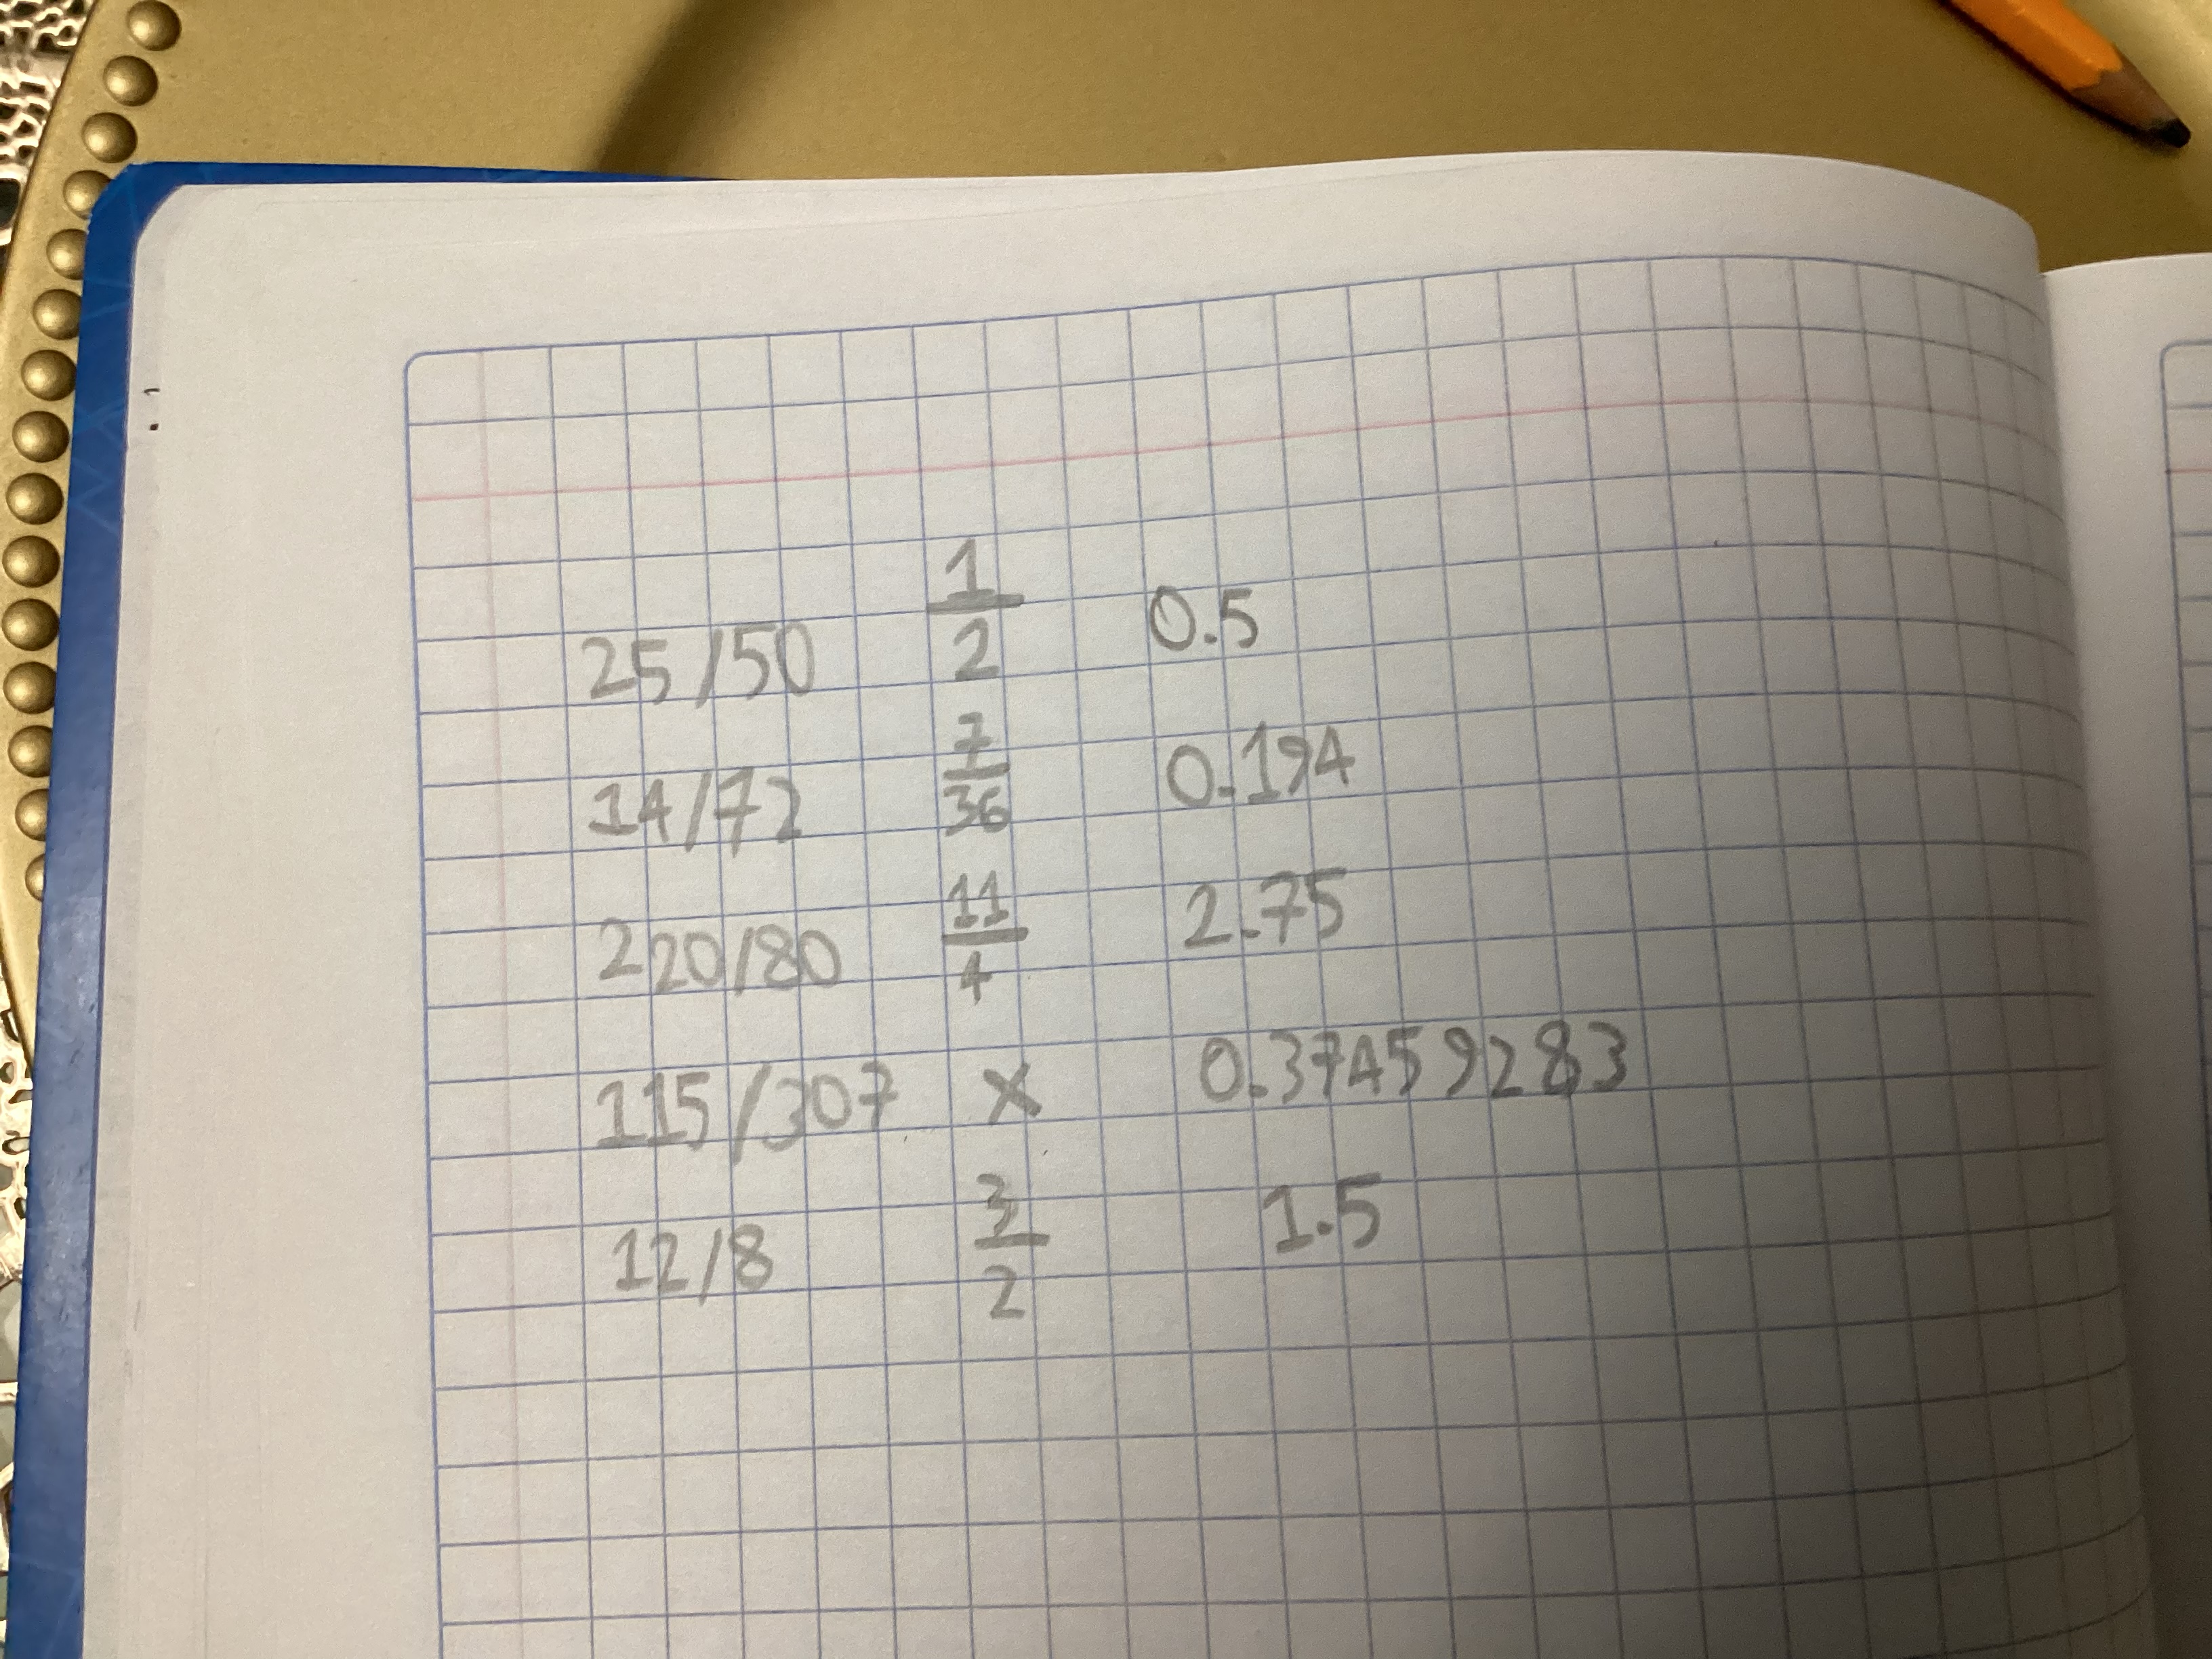 25/50 1/2 0.5
14/72 7/36 0.194
220/80 11/4 2.75
115/307 X 0.37459283
12/8 3/2 1.5